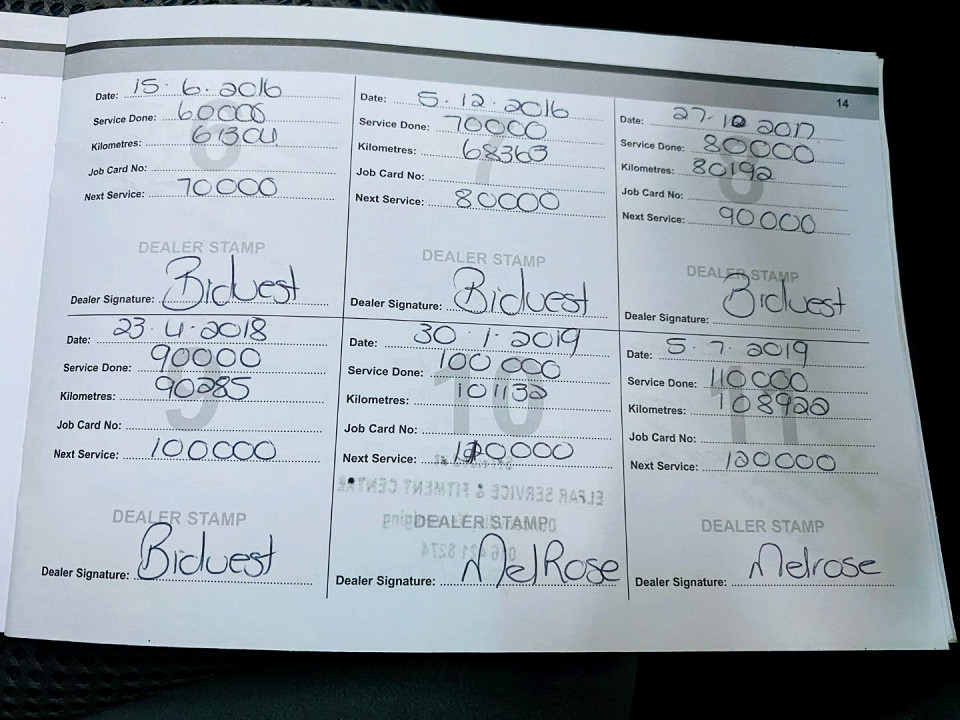 14
6
Date: 15.6.2016
Service Done: 60000
Kilometres: 61304
Job Card No:
Next Service: 70000
DEALER STAMP
Dealer Signature: Bidvest
7
Date: 5.12.2016
Service Done: 70000
Kilometres: 68363
Job Card No:
Next Service: 80000
DEALER STAMP
Dealer Signature: Bidvest
8
Date: 27-10 2017
Service Done: 80000
Kilometres: 80192
Job Card No:
Next Service: 90000
DEALER STAMP
Dealer Signature: Bidvest
9
Date: 23.4.2018
Service Done: 90000
Kilometres: 90285
Job Card No:
Next Service: 100000
DEALER STAMP
Dealer Signature: Bidvest
10
Date: 30.1.2019
Service Done: 100 000
Kilometres: 101132
Job Card No:
Next Service: 110000
ELPAR SERVICE & FITMENT CENTRE
DEALER STAMP
Dealer Signature: MelRose
11
Date: 5.7.2019
Service Done: 110000
Kilometres: 108922
Job Card No:
Next Service: 120000
DEALER STAMP
Dealer Signature: Melrose